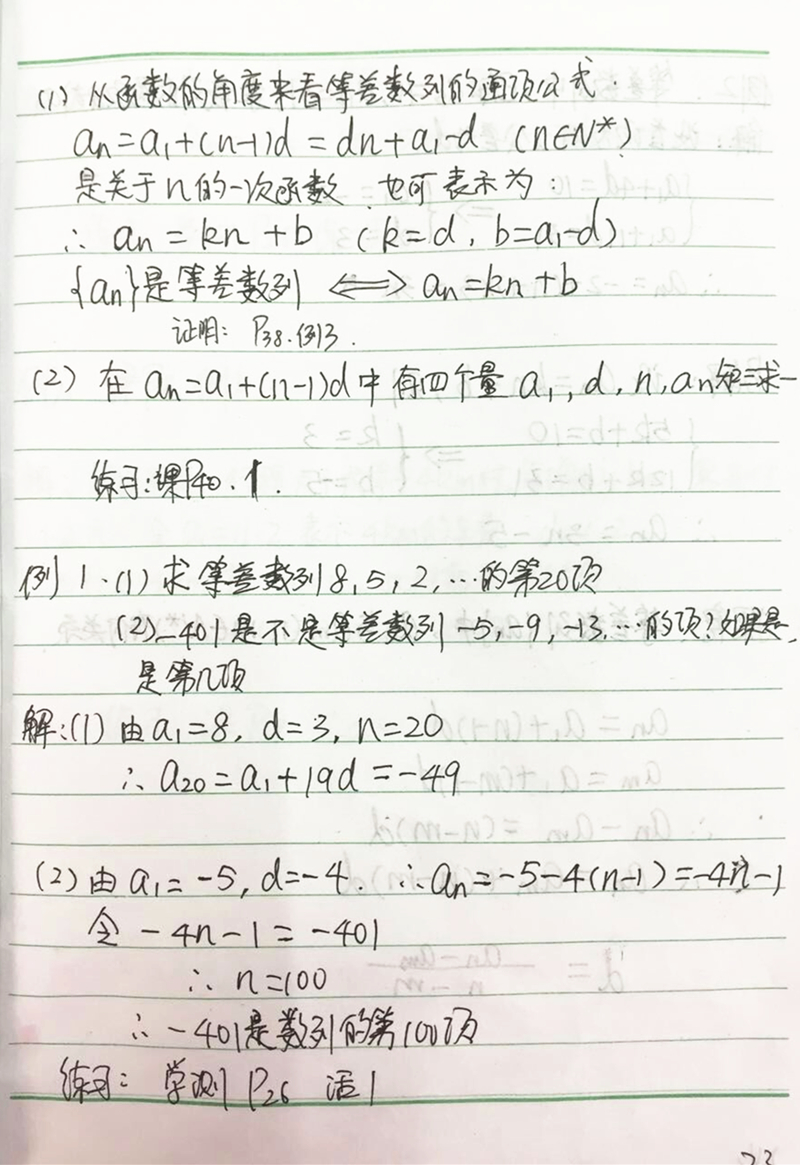 (1) 从函数的角度来看等差数列的通项公式.
an=a1+(n-1)d=dn+a1-d (n∈N*)
是关于n的一次函数 也可表示为:
∴ an=kn+b (k=d, b=a1-d)
{an}是等差数列 <=> an=kn+b
证明: P38.例3.
(2) 在an=a1+(n-1)d中有四个量a1,d,n,an知三求一
练习:课P40.1.
例1.(1)求等差数列8,5,2,…的第20项
(2)-401是不是等差数列-5,-9,-13,…的项?如果是,
是第几项
解:(1)由a1=8, d=3, n=20
∴a20=a1+19d=-49
(2)由a1=-5,d=-4. ∴an=-5-4(n-1)=-4n-1
令-4n-1=-401
∴n=100
∴-401是数列的第100项
练习: 学测P26 活1
23